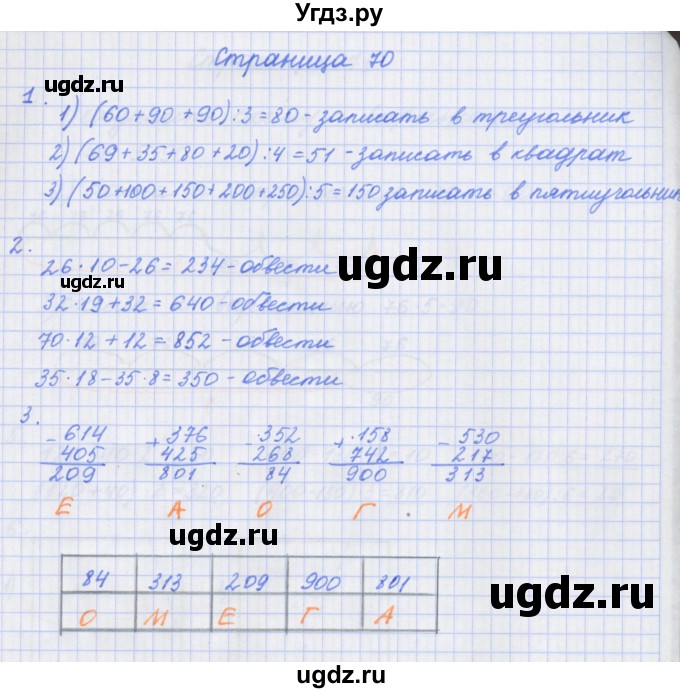 Угдз.ру
Страница 70
ugdz.ru
1.
1) (60+90+90):3=80-записать в треугольник
2) (69+35+80+20):4=51-записать в квадрат
3) (50+100+150+200+250):5=150 записать в пятиугольник
2.
26·10-26=234-обвести
ugdz.ru
ugdz.ru
32·19+32=640-обвести
70·12+12=852-обвести
35·18-35·8=350-обвести
3.
-614 +376 -352 +158 -530
405 425 268 742 217
209 801 84 900 313
Е А О Г М
ugdz.ru
ugdz.ru
84 313 209 900 801
О М Е Г А
ugdz.ru
ugdz.ru